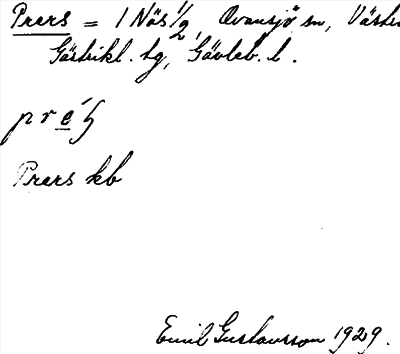 Prers = 1 Näs 1/2, Ovansjö sn, Västra
Gästrikl. tg, Gävleb. l.
Prers kb
Emil Gustavsson 1929.